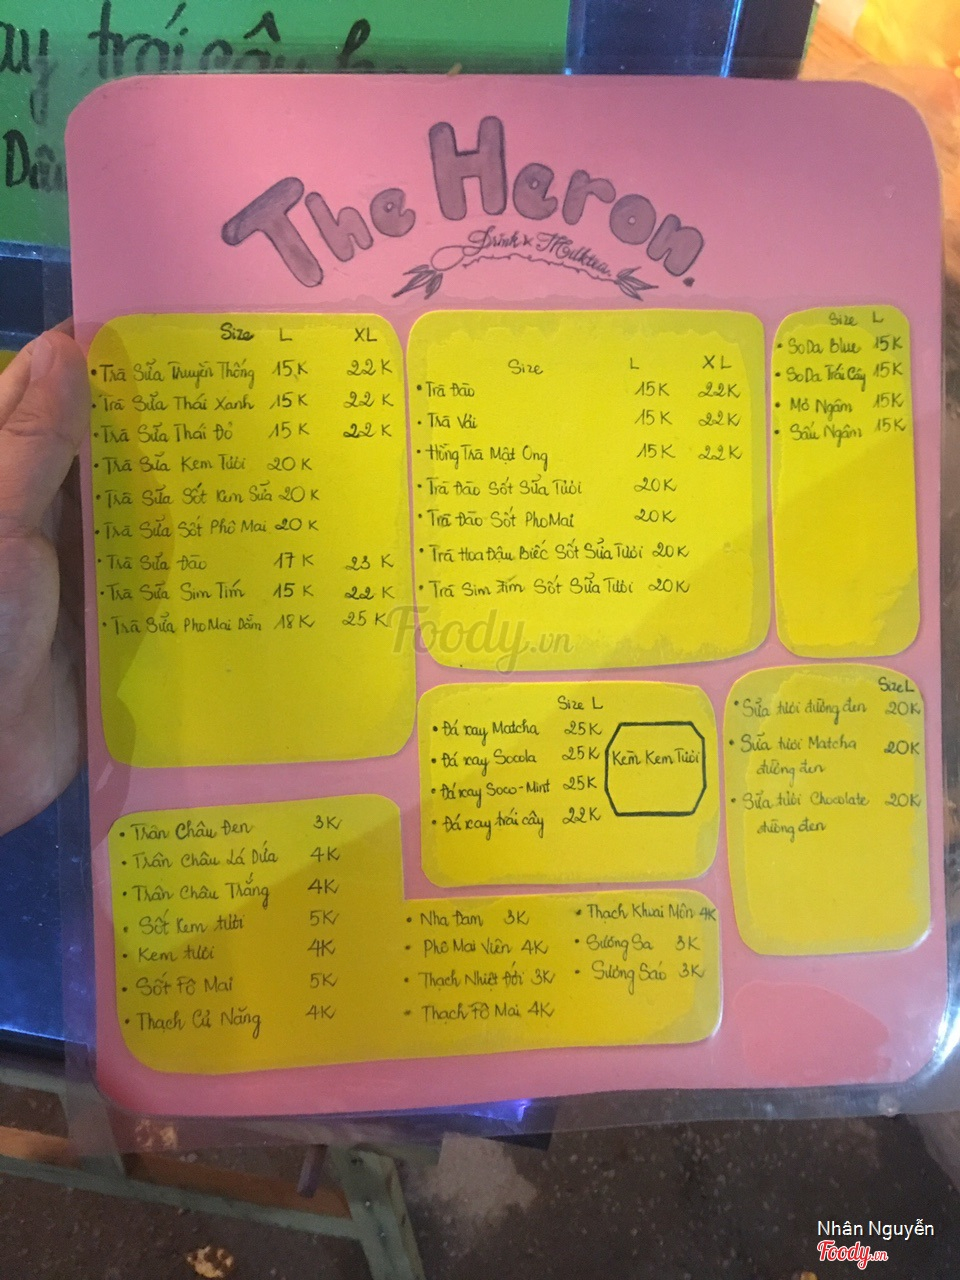 ay trái cây
The Heron.
Drink & Milktea.
Size L XL
• Trà Sữa Truyền Thống 15K 22K
• Trà Sữa Thái Xanh 15K 22K
• Trà Sữa Thái Đỏ 15K 22K
• Trà Sữa Kem Tươi 20K
• Trà Sữa Sốt Kem Sữa 20K
• Trà Sữa Sốt Phô Mai 20K
• Trà Sữa Đào 17K 23K
• Trà Sữa Sim Tím 15K 22K
• Trà Sữa PhoMai Dằm 18K 25K
Size L XL
• Trà Đào 15K 22K
• Trà Vải 15K 22K
• Hồng Trà Mật Ong 15K 22K
• Trà Đào Sốt Sữa Tươi 20K
• Trà Đào Sốt PhoMai 20K
• Trà Hoa Đậu Biếc Sốt Sữa Tươi 20K
• Trà Sim Tím Sốt Sữa Tươi 20K
Size L
• SoDa Blue 15K
• SoDa Trái Cây 15K
• Mơ Ngâm 15K
• Sấu Ngâm 15K
Foody.vn
Size L
• Đá xay Matcha 25K
• Đá xay Socola 25K
• Đá xay Soco-Mint 25K
• Đá xay trái cây 22K
Kèm Kem Tươi
Size L
• Sữa tươi đường đen 20K
• Sữa tươi Matcha 20K
đường đen
• Sữa tươi Chocolate 20K
đường đen
• Trân Châu Đen 3K
• Trân Châu Lá Dứa 4K
• Trân Châu Trắng 4K
• Sốt Kem tươi 5K
• Kem tươi 4K
• Sốt Fô Mai 5K
• Thạch Củ Năng 4K
• Nha Đam 3K
• Phô Mai Viên 4K
• Thạch Nhiệt Đới 3K
• Thạch Fô Mai 4K
• Thạch Khoai Môn 4K
• Sương Sa 3K
• Sương Sáo 3K
Nhân Nguyễn
Foody.vn